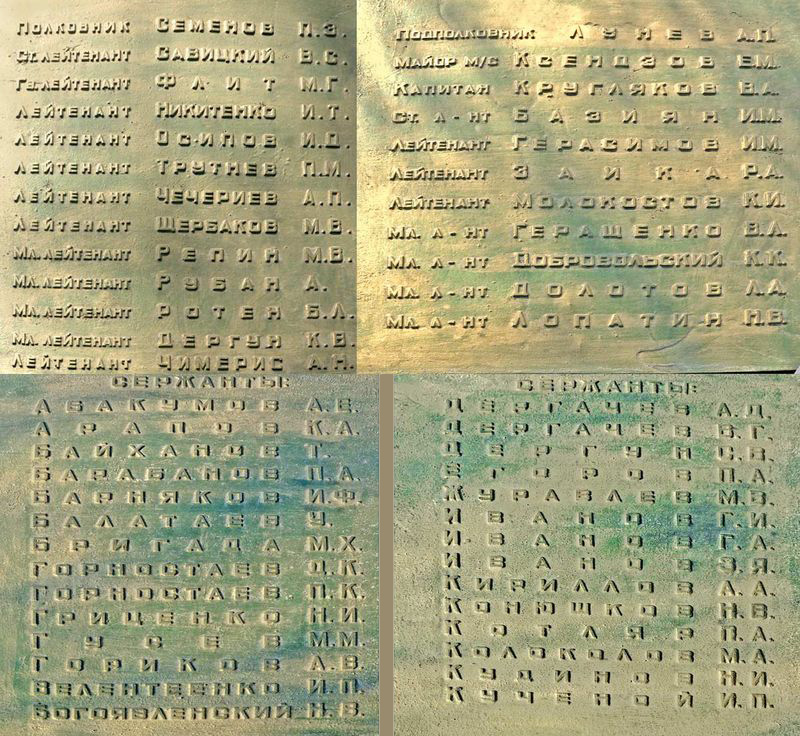 Полковник Семенов П.З.
Ст. лейтенант Савицкий В.С.
Гв. лейтенант Флит М.Г.
Лейтенант Никитенко И.Т.
Лейтенант Осипов И.Д.
Лейтенант Трутнев П.И.
Лейтенант Чечериев А.П.
Лейтенант Щербаков М.В.
Мл. лейтенант Репин М.В.
Мл. лейтенант Рубан А.
Мл. лейтенант Ротен Б.Л.
Мл. лейтенант Дергун К.В.
Лейтенант Чимерис А.Н.
Подполковник Лунев А.П.
Майор м/с Ксендзов Е.М.
Капитан Кругляков В.А.
Ст. л-нт Базиян И.М.
Лейтенант Герасимов И.М.
Лейтенант Заика Р.А.
Лейтенант Молокостов К.И.
Мл. л-нт Геращенко В.Л.
Мл. л-нт Добровольский К.К.
Мл. л-нт Долотов Л.А.
Мл. л-нт Лопатин Н.В.
Сержанты:
Абакумов А.Е.
Арапов К.А.
Байханов Т.
Барабанов П.А.
Барняков И.Ф.
Балатаев У.
Бригада М.Х.
Горностаев Д.К.
Горностаев П.К.
Гриценко Н.И.
Гусев М.М.
Гориков А.В.
Велентеенко И.П.
Богоявленский Н.В.
Сержанты:
Дергачев А.Д.
Дергачев Г.
Дергун В.
Егоров П.А.
Журавлев М.В.
Иванов Г.И.
Иванов Г.А.
Иванов З.Я.
Кириллов А.А.
Конюшков Н.В.
Котляр П.А.
Колоколов М.А.
Кудинов Н.И.
Кученой И.П.